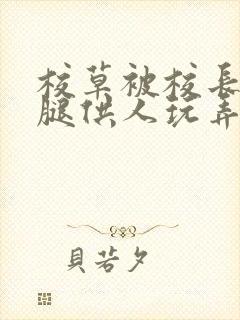 校草被校長
腿供人玩弄
貝若夕